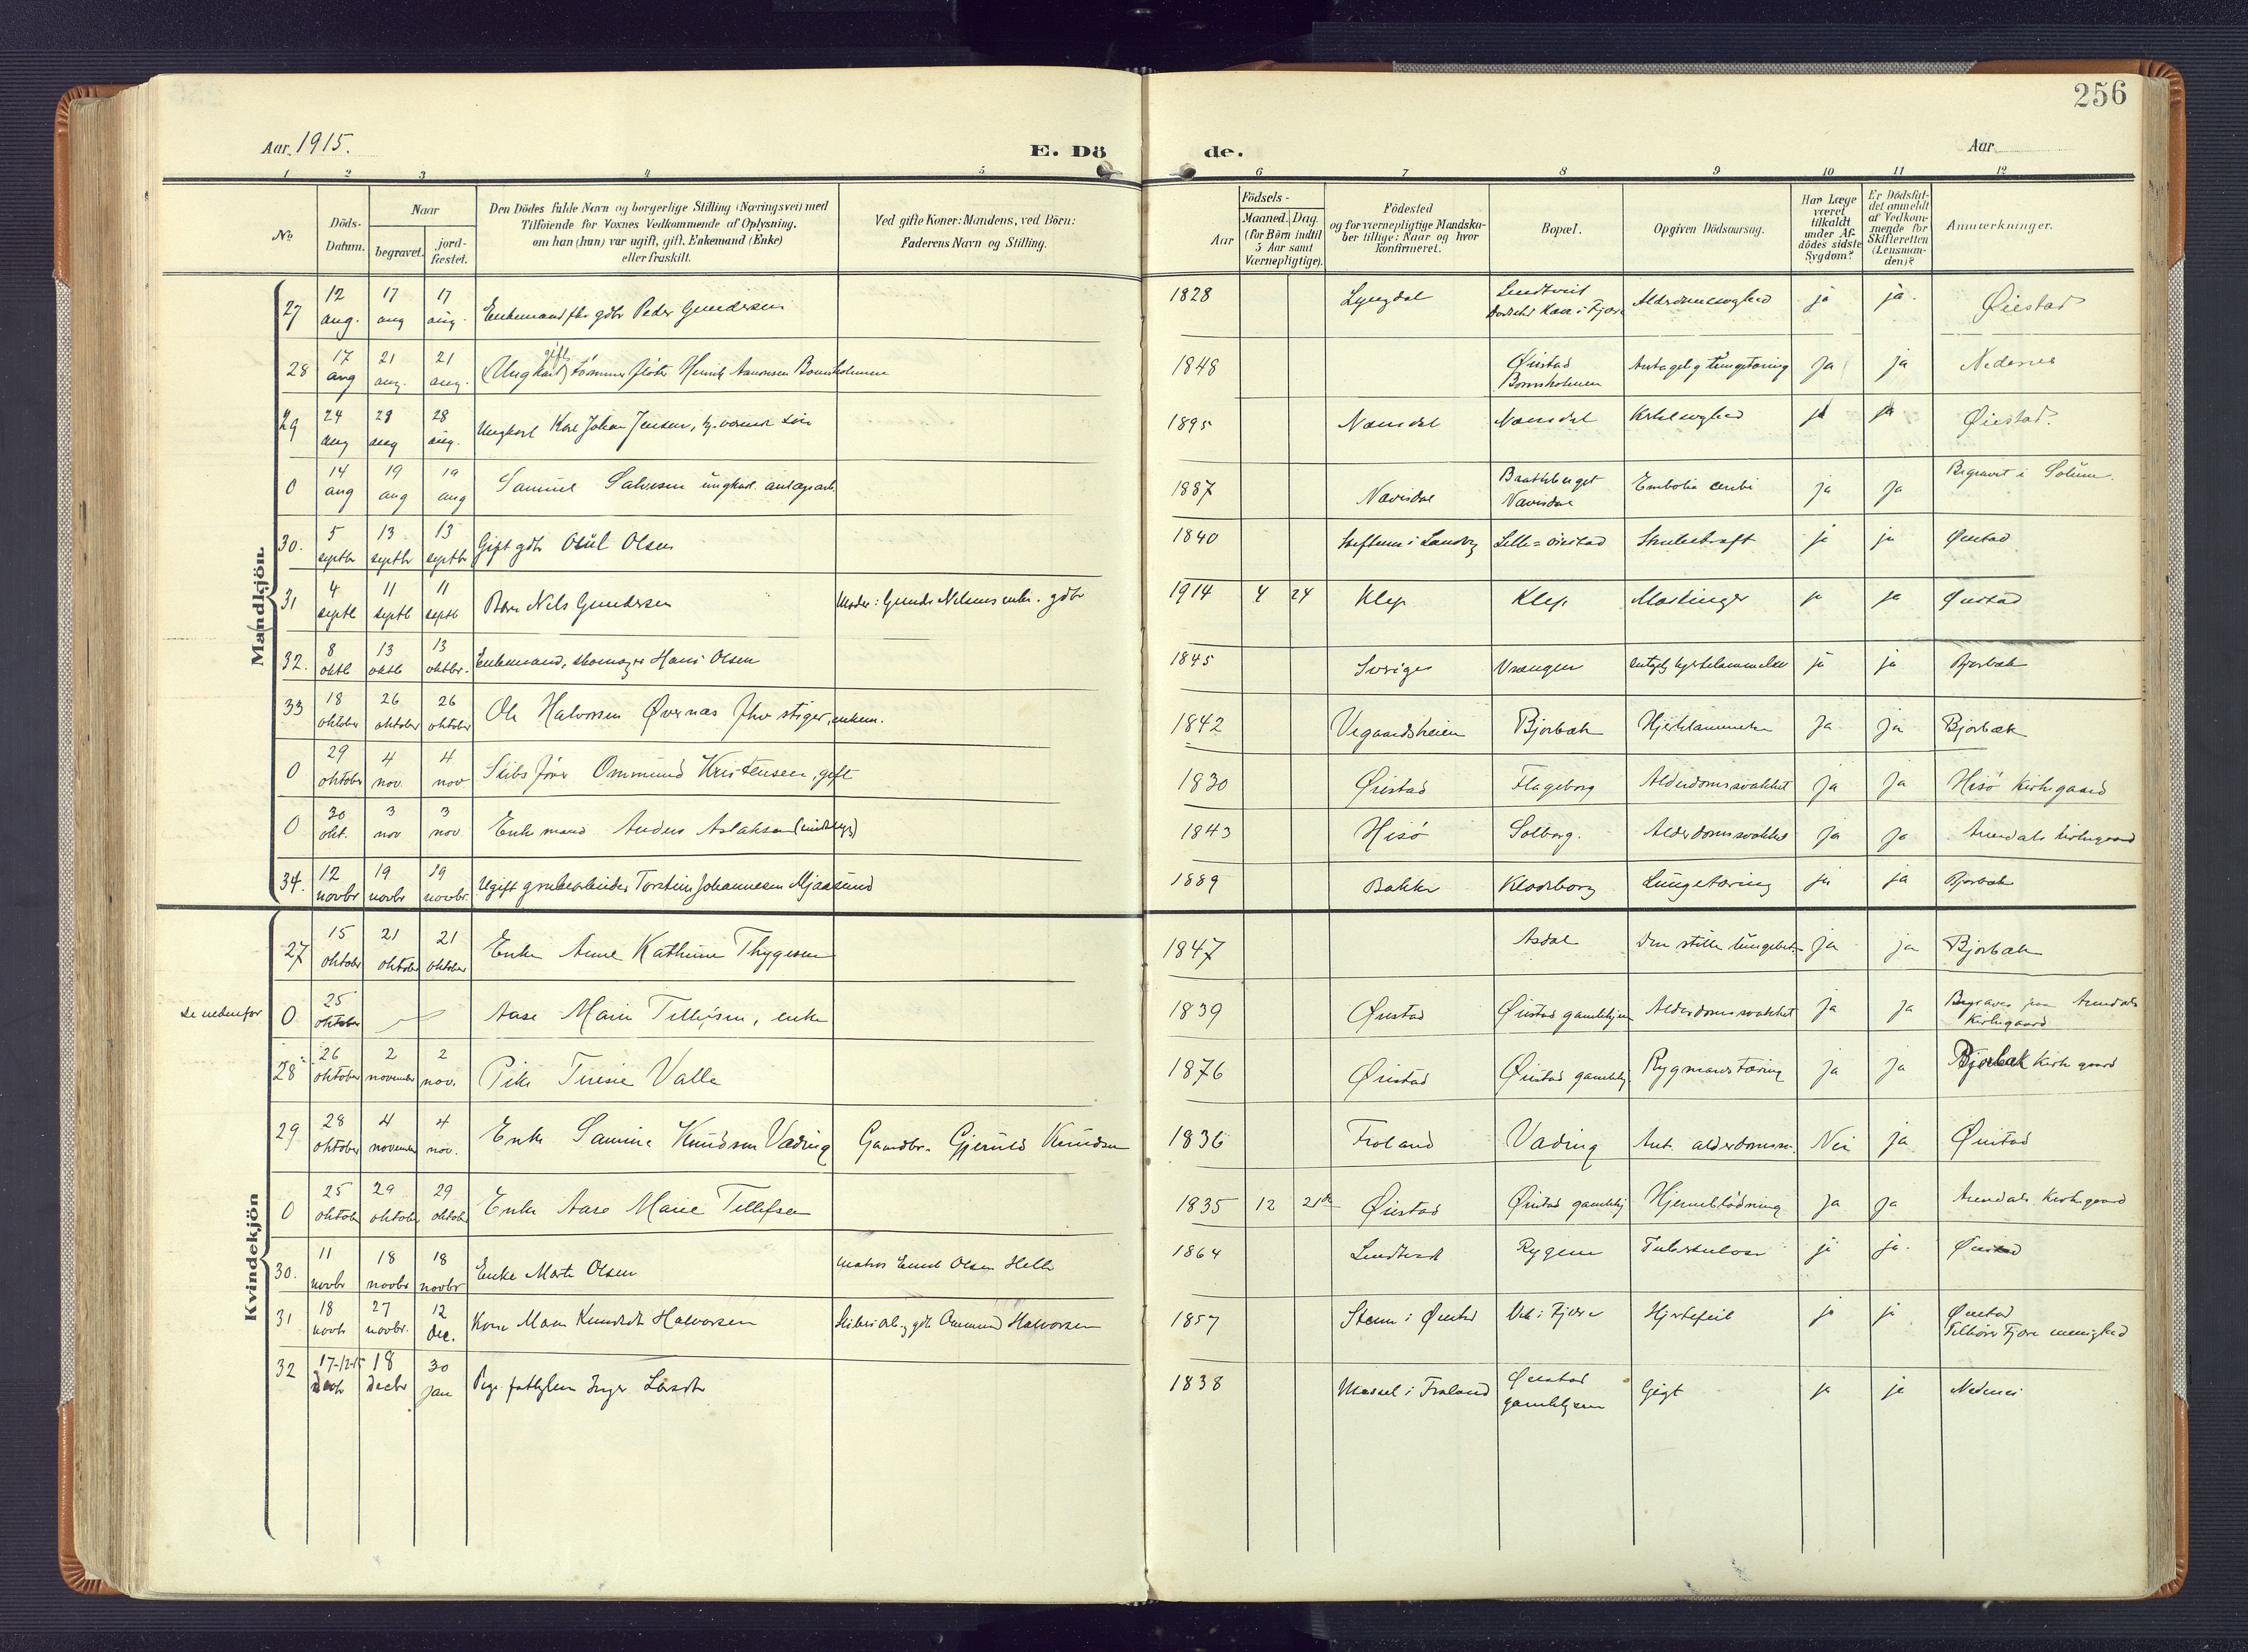 256
Aar 1915.
E. Dö
de.
Aar
1 2 3 4 5 6 7 8 9 10 11 12
No
Döds-Datum.
Naar
begravet.
jord-fæstet.
Den Dödes fulde Navn og borgerlige Stilling (Næringsvei) med
Tilföiende for Voxnes Vedkommende af Oplysning,
om han (hun) var ugift, gift, Enkemand (Enke)
eller fraskilt.
Ved gifte Koner: Mandens, ved Börn:
Faderens Navn og Stilling.
Födsels-
Aar
Maaned. Dag.
(for Börn indtil
5 Aar samt
Værnepligtige).
Födested
og for værnepligtige Mandska-
ber tillige: Naar og hvor
konfirmeret.
Bopæl.
Opgiven Dödsaarsag.
Har Læge
været
tilkaldt
under Af-
dödes sidste
Sygdom?
Er Dödsfal-
det anmeldt
af Vedkom-
mende for
Skifteretten
(Lensman-
den)?
Anmerkninger.
Mandkjön
27 12 aug. 17 aug 17 aug. Enkemand fhv gdbr Peder Gundersen 1828 Lyngdal Alderdomssvaghed ja ja. Øiestad
28 17 aug 21 aug. 21 aug. Ungkarl gift tømmerfløter Henrik Aanonsen Bomsholmen 1848 Øiestad Bomsholmen Antagelig lungetæring ja ja Nedenes
29 24 aug 28 aug 28 aug. Ungkarl Karl Johan Jensen, 1895 ja ja Øiestad.
0 14 aug 19 aug 19 aug Samuel Salvesen ungkarl. anlægsarb. 1887 Nævisdal Nævisdal Embolia cerebi ja ja Begravet i Solum.
30. 5 septbr 13 septbr 13 septbr Gift gdbr Osul Olsen 1840 Lille=Øiestad ja ja Øiestad
31 4 septb 11 septb 11 septb Barn Nils Gundersen Moder: Gunda Nilsens enke. gdbr 1914 4 24 Klep Klep Meslinger ja ja Øiestad
32. 8 oktb 13 oktb 13 oktbr. Enkemand, skomager Hans Olsen 1845 Sverige Vrængen hjertelammelse ja ja Bjorbæk
33 18 oktober 26 oktober 26 oktober Ole Halvorsen Øvernæs fhv stiger, enkem. 1842 Vegaardsheien Bjorbæk Hjertelammelse ja ja Bjorbæk
0 29 oktober 4 nov. 4 nov Skibsfører Ommund Kristensen, gift 1830 Øiestad Flageborg Alderdomssvakhet ja ja Hisø kirkegaard
0 30 okt. 3 nov 3 nov. Enkemand Anders Aslaksen 1843 Hisø Solborg. Alderdomssvakhet ja ja Arendals kirkegaard
34. 12 novbr 19 novbr 19 novbr. Ugift grubearbeider Torstein Johannesen Mjaasund 1889 Bakke Klodeborg Lungetæring ja ja Bjorbæk
Kvindekjön
27 15 oktober 21 oktober 21 oktober Enke Anne Kathrine Thygesen 1847 Asdal Den stille lungebet. ja ja Bjorbæk
Se nedenfor 0 25 oktober Aase Marie Tellefsen, enke 1839 Øiestad Øiestad gamlehjem Alderdomssvakhet ja ja Begraves paa Arendals kirkegaard
28 26 oktober 2 november 2 nov. Pike Teresie Valle 1876 Øiestad Øiestad gamlehj. Rygmarvstæring ja ja Bjorbæk kirkegaard
29 28 oktober 4 november 4 nov. Enke Samine Knudsen Vading Gaardbr. Gjeruld Knudsen 1836 Froland Vading Ant. alderdomssv. Nei ja Øiestad
0 25 oktober 29 oktober 29 oktober Enke Aase Marie Tellefsen 1835 12 21de Øiestad Øiestad gamlehj Hjerneblødning ja ja Arendals kirkegaard
30. 11 novbr 18 novbr 18 novbr Enke Marte Olsen matros Emil Olsen Helle 1864 Lindtveit Rygene Tuberkulose ja ja. Øiestad
31 18 novb 27 novbr. 12 dec. Kone Maren Knudsdt Halvorsen Ommund Halvorsen 1857 Steane i Øiestad Vik i Fjære Hjertefeil ja ja Øiestad Tilhører Fjære menighed
32 17-12-15 decbr 18 decbr 30 jan Pige fattiglem Inger Larsdtr 1838 Messel i Froland Øiestad gamlehjem Gigt ja ja Nedenes